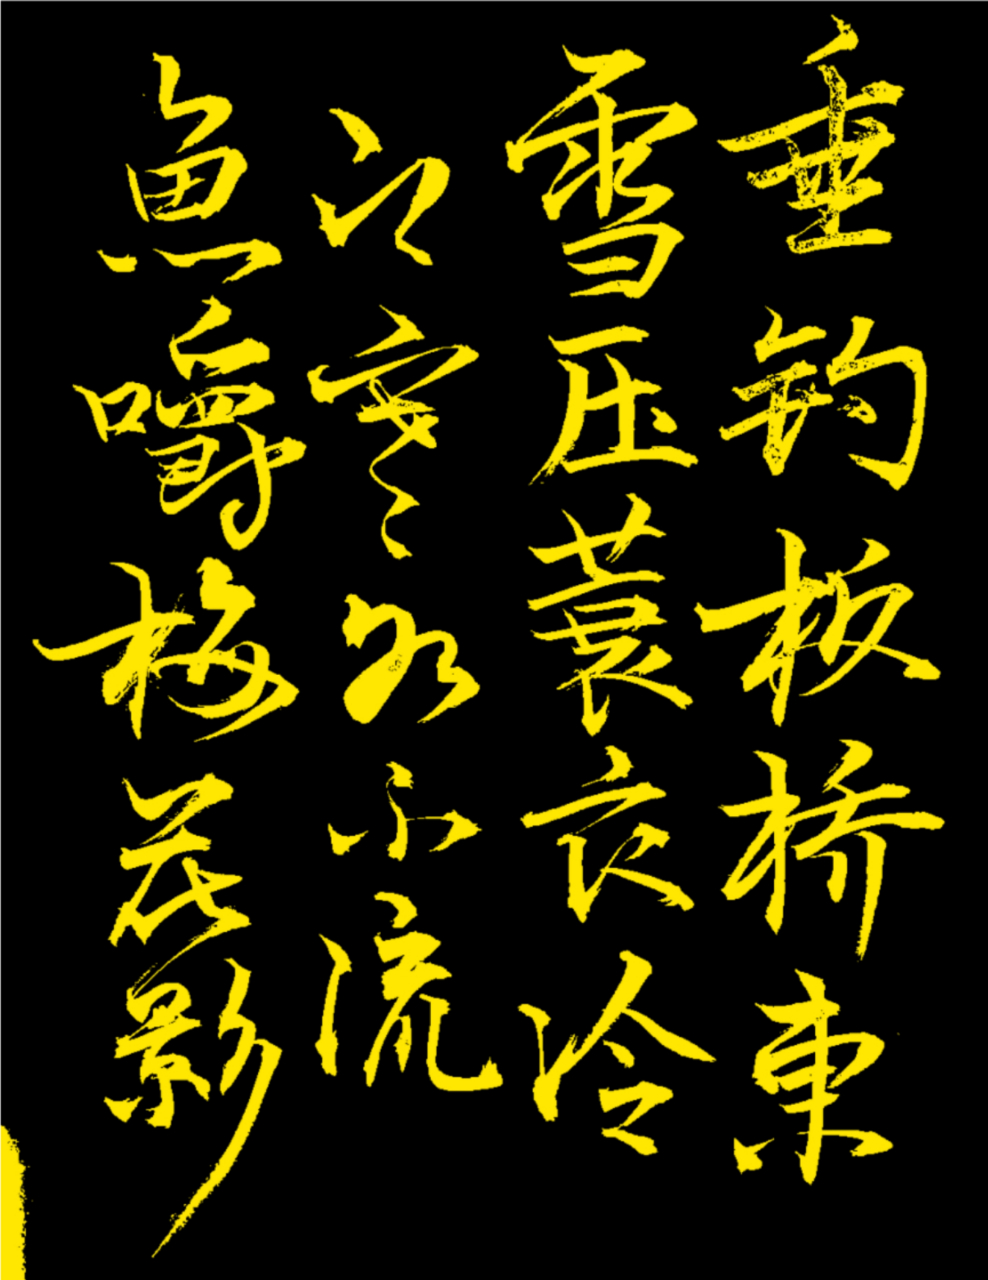 垂钓板桥東
雪压蓑衣冷
江寒水不流
魚嚼梅花影